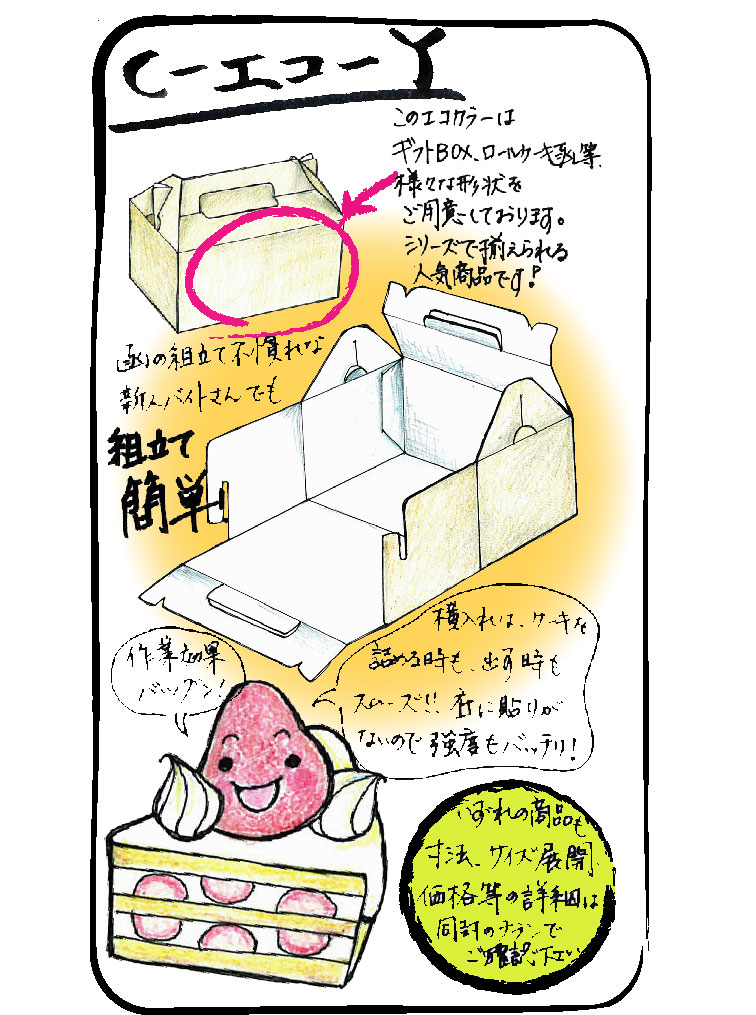 C-エコーY
このエコクラーは
ギフトBOX、ロールケーキ函等、
様々な形状を
ご用意しております。
シリーズで揃えられる
人気商品です!
函の組立て不慣れな
新人バイトさんでも
組立て
簡単!
横入れは、ケーキを
詰める時も、出す時も
スムーズ!!、底に貼りが
ないので強度もバッチリ!
作業効果
バツグン!
いずれの商品も
寸法、サイズ展開、
価格等の詳細は
同封のチラシで
ご確認下さい